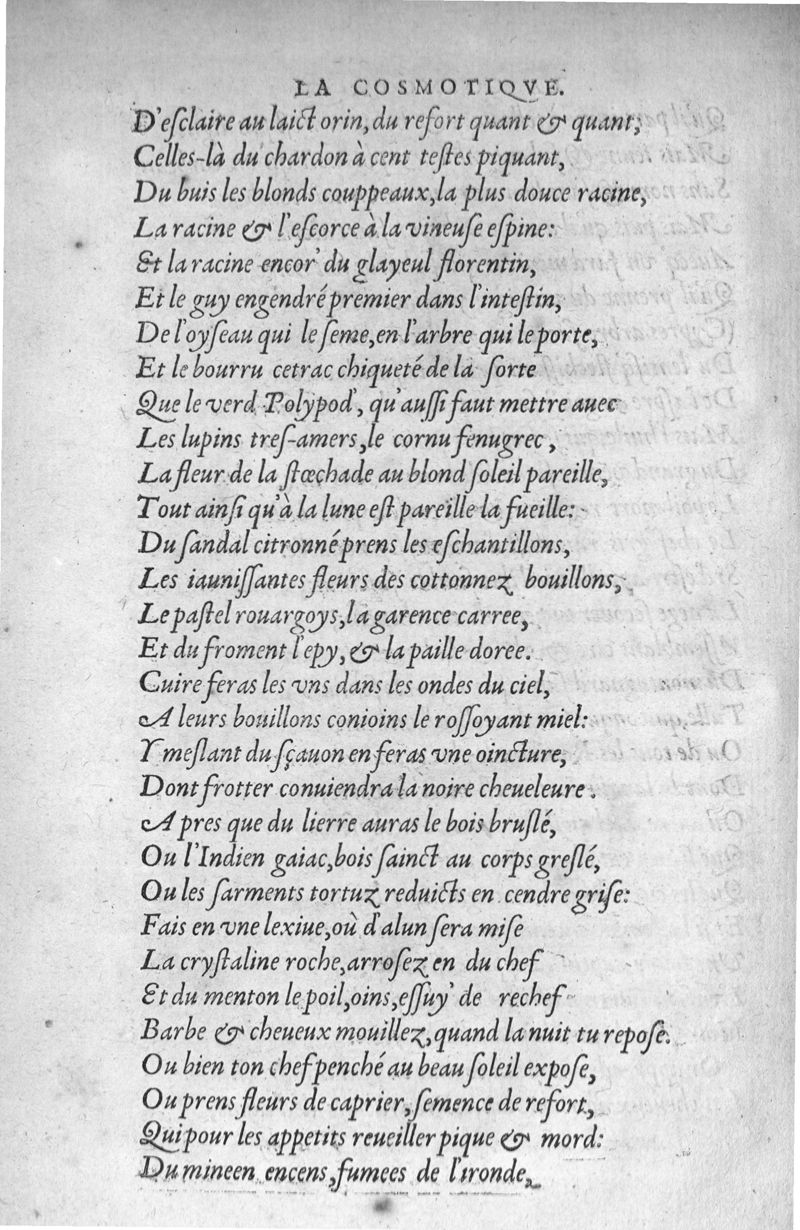 LA COSMOTIQVE.
D'eſclaire au laict orin, du refort quant & quant;
Celles-là du chardon à cent teſtes piquant,
Du buis les blonds couppeaux, la plus douce racine,
La racine & l'eſcorce à la vineuſe eſpine:
Et la racine encor' du glayeul florentin,
Et le guy engendré premier dans l'inteſtin,
De l'oyſeau qui le ſeme, en l'arbre qui le porte,
Et le bourru cetrac chiqueté de la ſorte
Que le verd Polypod', qu'auſſi faut mettre auec
Les lupins treſ-amers, le cornu fenugrec,
La fleur de la ſtœchade au blond ſoleil pareille,
Tout ainſi qu'à la lune eſt pareille la fueille:
Du ſandal citronné prens les eſchantillons,
Les iauniſſantes fleurs des cottonnez bouillons,
Le paſtel rouargoys, la garence carree,
Et du froment l'epy, & la paille doree.
Cuire feras les vns dans les ondes du ciel,
A leurs bouillons conioins le roſſoyant miel:
Y meſlant du ſçauon en feras vne oincture,
Dont frotter conuiendra la noire cheueleure.
Apres que du lierre auras le bois bruſlé,
Ou l'Indien gaiac, bois ſainct au corps greſlé,
Ou les ſarments tortuz reduicts en cendre griſe:
Fais en vne lexiue, où d'alun ſera miſe
La cryſtaline roche, arroſez en du chef
Et du menton le poil, oins, eſſuy' de rechef
Barbe & cheueux mouillez, quand la nuit tu repoſe.
Ou bien ton chef penché au beau ſoleil expoſe,
Ou prens fleurs de caprier, ſemence de refort,
Qui pour les appetits reueiller pique & mord:
Du mineen encens, fumees de l'ironde,